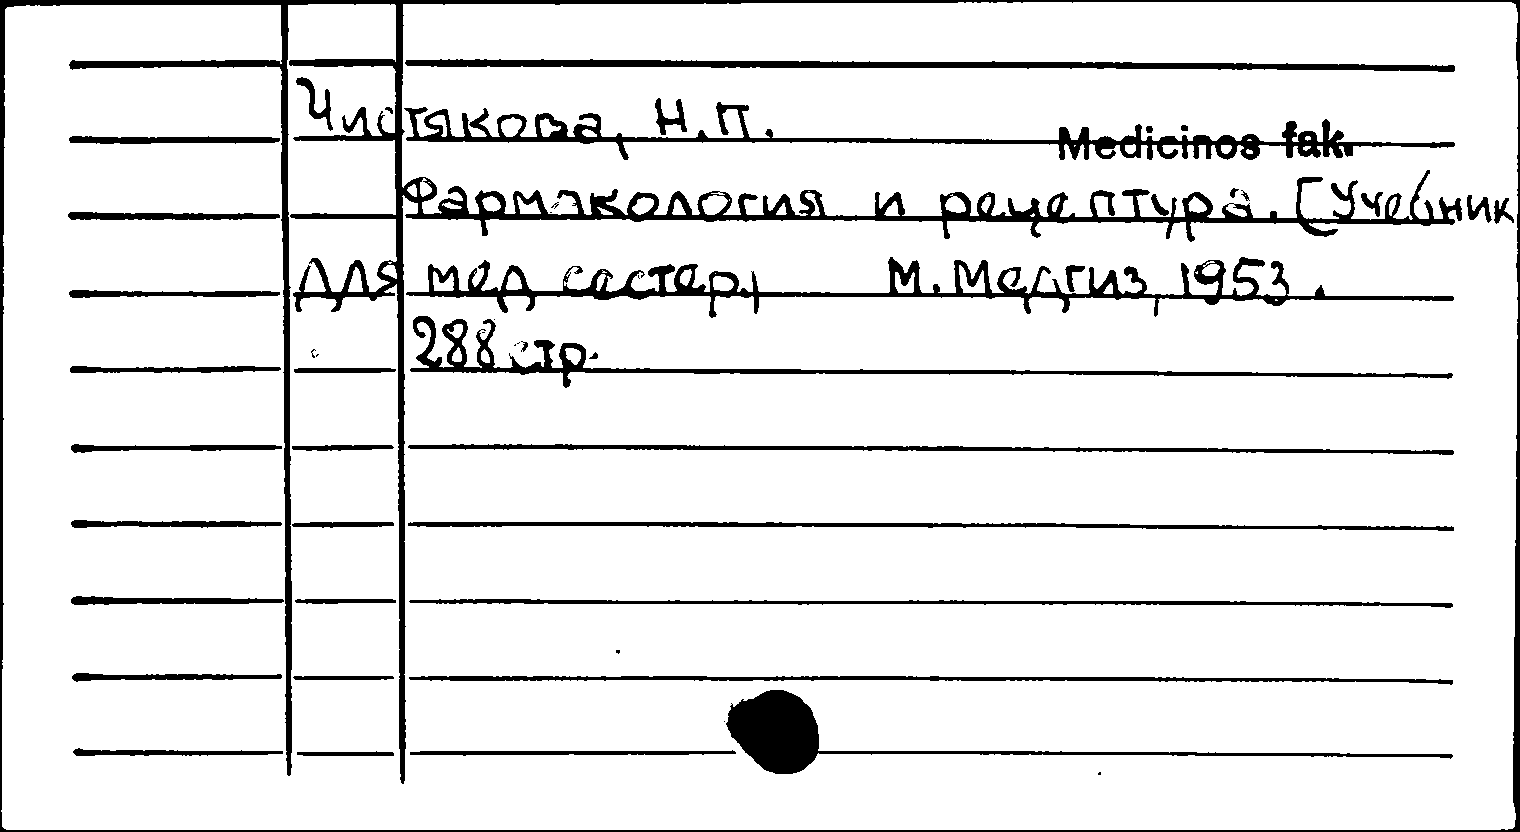 Чистякова, Н.П.
Medicinos fak.
Фармакология и рецептура. [Учебник
для мед сестер.] М. Медгиз, 1953.
288 стр.